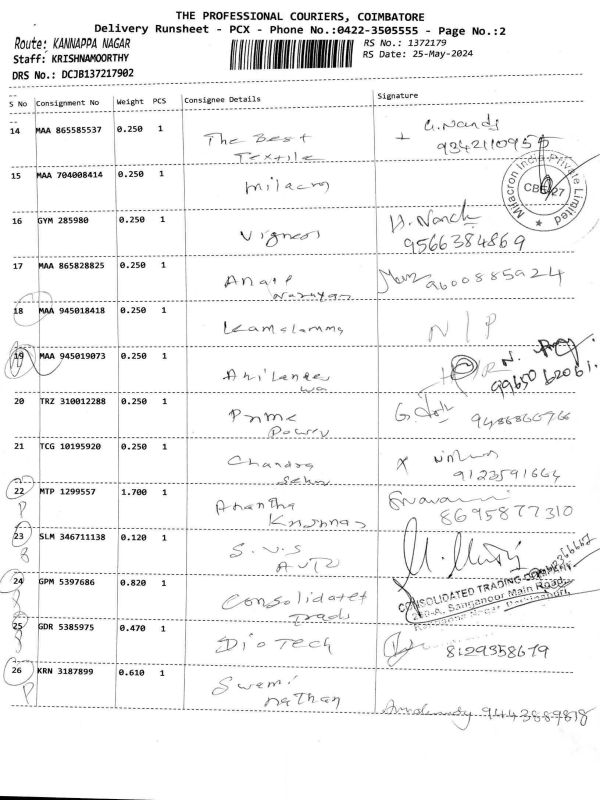 THE PROFESSIONAL COURIERS, COIMBATORE
Delivery Runsheet - PCX - Phone No.:0422-3505555 - Page No.:2
Route: KANNAPPA NAGAR
RS No.: 1372179
Staff: KRISHNAMOORTHY
RS Date: 25-May-2024
DRS No.: DCJB137217902
S No Consignment No Weight PCS Consignee Details Signature
14 MAA 865585537 0.250 1 The Best
Textile
G. Nandy
9342110955
15 MAA 704008414 0.250 1 milacry
Milacron India Private Limited
CBE/27
16 GYM 285980 0.250 1
9566384869
17 MAA 865828825 0.250 1
Narayan
9600885924
18 MAA 945018418 0.250 1 Kamalamma
N/P
19 MAA 945019073 0.250 1
9965062061
20 TRZ 310012288 0.250 1 Prime
Power
9486866766
21 TCG 10195920 0.250 1 Chandra
9123591664
22 MTP 1299557 1.700 1 Anantha
Krishnan
8695877310
23 SLM 346711138 0.120 1 S.V.S
AUTO
24 GPM 5397686 0.820 1 Consolidatet
Trads
CONSOLIDATED TRADING COMPANY
Sanganoor Main Road,
25 GDR 5385975 0.470 1 Dio Tech
8129358679
26 KRN 3187899 0.610 1 Swami
nathan
9443889818